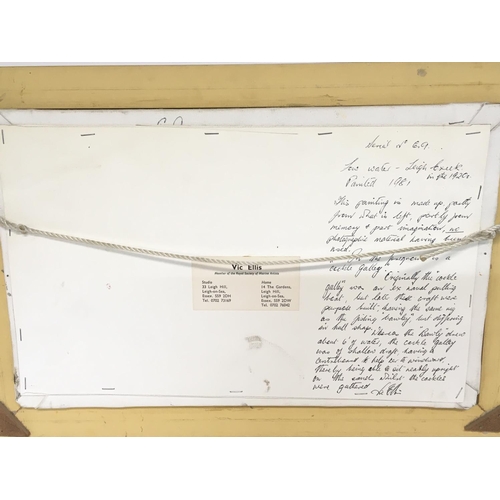 Serial No E.G.
Low water - Leigh Creek
in the 1920s.
Painted 1981
This painting is made up, partly
from what is left, partly from
memory & part imagination, no
photographic material having been
used.
In the foreground is a
cockle galley.
Originally the "cockle
galley" was an ex naval pulling
boat, but later these craft were
purpose built, having the same rig
as the fishing bawley, but differing
in hull shape.
Whereas the Bawley drew
about 6' of water, the cockle galley
was of shallow draft, having a
centreboard to help her to windward,
thereby being able to sit nearly upright
on the sands whilst the cockles
were gathered.
Vic Ellis
Vic Ellis
Member of the Royal Society of Marine Artists
Studio
Home
33 Leigh Hill,
14 The Gardens,
Leigh-on-Sea,
Leigh Hill,
Essex. SS9
Leigh-on-Sea,
Essex. SS9
Tel. 0702
Tel. 0702